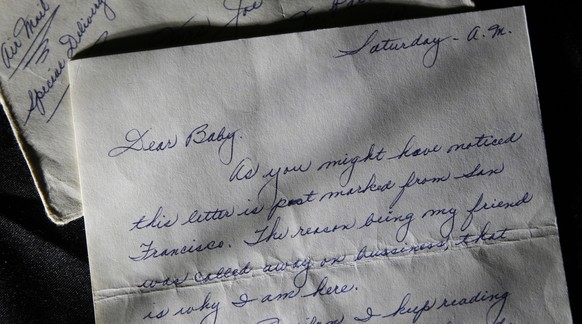 Air Mail
Special Delivery
Joe
Saturday - A.M.
Dear Baby.
As you might have noticed
this letter is post marked from San
Francisco. The reason being my friend
was called away on bussiness, that
is why I am here.
I kup reading